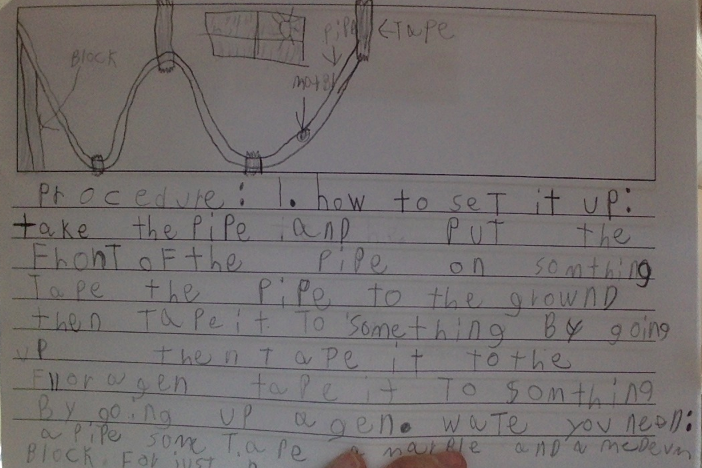 PiPe
←TAPe
BLOCK
Procedure: 1. how to seT it uP:
take the PiPe and PuT the
FronT oF the PiPe on somthing
TaPe the PiPe to the grownD
then TaPe it To something By going
uP then TaPe it to the
Fllor agen taPe it To somthing
By going uP agen. waTe you neeD:
a PiPe some TaPe a marble anD a meDeum
BLOCK. For just